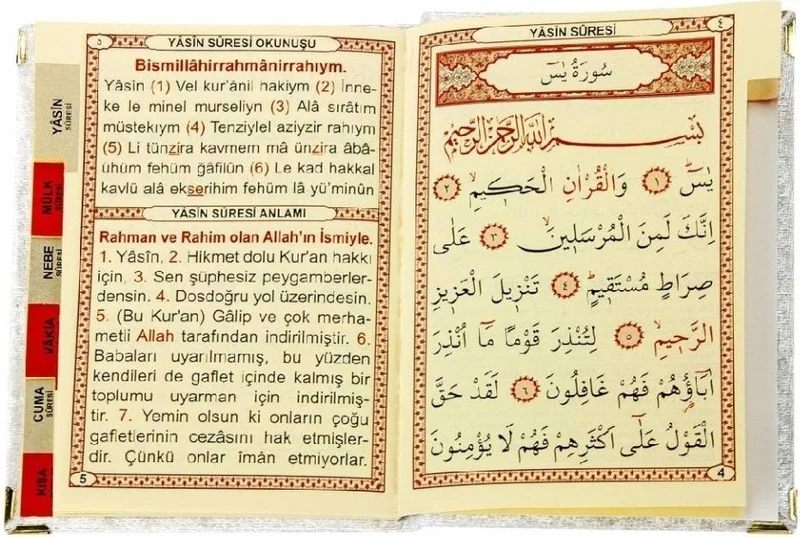 YÂSİN SÛRESİ
٤
سُورَةُ يٰسٓ
بِسْمِ اللّٰهِ الرَّحْمٰنِ الرَّحِيمِ
يٰسٓ ﴿١﴾ وَالْقُرْاٰنِ الْحَكِيمِ ﴿٢﴾
اِنَّكَ لَمِنَ الْمُرْسَلِينَ ﴿٣﴾ عَلٰى
صِرَاطٍ مُسْتَقِيمٍ ﴿٤﴾ تَنْزِيلَ الْعَزِيزِ
الرَّحِيمِ ﴿٥﴾ لِتُنْذِرَ قَوْمًا مَٓا اُنْذِرَ
اٰبَٓاؤُ۬هُمْ فَهُمْ غَافِلُونَ ﴿٦﴾ لَقَدْ حَقَّ
الْقَوْلُ عَلٰٓى اَكْثَرِهِمْ فَهُمْ لَا يُؤْمِنُونَ
4
٥
YÂSİN SÛRESİ OKUNUŞU
Bismillâhirrahmânirrahıym.
Yâsîn (1) Vel kur'ânil hakiym (2) İnne-
ke le minel murseliyn (3) Alâ sırâtım
müstekıym (4) Tenziylel aziyzir rahıym
(5) Li tünzira kavmem mâ ünzira âbâ-
ühüm fehüm ğâfilûn (6) Le kad hakkal
kavlü alâ ekserihim fehüm lâ yü'minûn
YÂSİN SÛRESİ ANLAMI
Rahman ve Rahim olan Allah'ın İsmiyle.
1. Yâsîn, 2. Hikmet dolu Kur'an hakkı
için, 3. Sen şüphesiz peygamberler-
densin. 4. Dosdoğru yol üzerindesin.
5. (Bu Kur'an) Gâlip ve çok merha-
metli Allah tarafından indirilmiştir. 6.
Babaları uyarılmamış, bu yüzden
kendileri de gaflet içinde kalmış bir
toplumu uyarman için indirilmiş-
tir. 7. Yemin olsun ki onların çoğu
gafletlerinin cezâsını hak etmişler-
dir. Çünkü onlar îmân etmiyorlar.
5
YÂSİN
SÛRESİ
MÜLK
SÛRESİ
NEBE
SÛRESİ
VÂKIA
CUMA
SÛRESİ
KISA